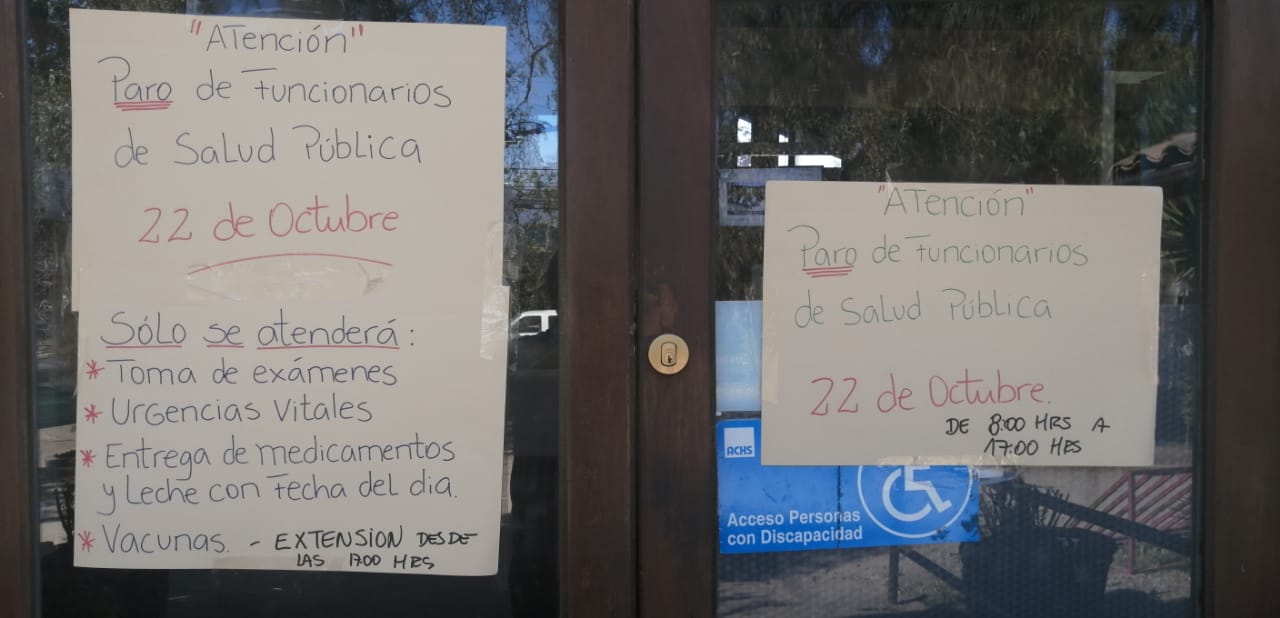 "ATención"
Paro de Funcionarios
de Salud Pública
22 de Octubre
Sólo se atenderá:
* Toma de exámenes
* Urgencias Vitales
* Entrega de medicamentos
y Leche con Fecha del dia.
* Vacunas. - EXTENSION DESDE
LAS 17:00 HRS
"ATención"
Paro de Funcionarios
de Salud Pública
22 de Octubre.
DE 8:00 HRS A
17:00 HRS
ACHS
Acceso Personas
con Discapacidad